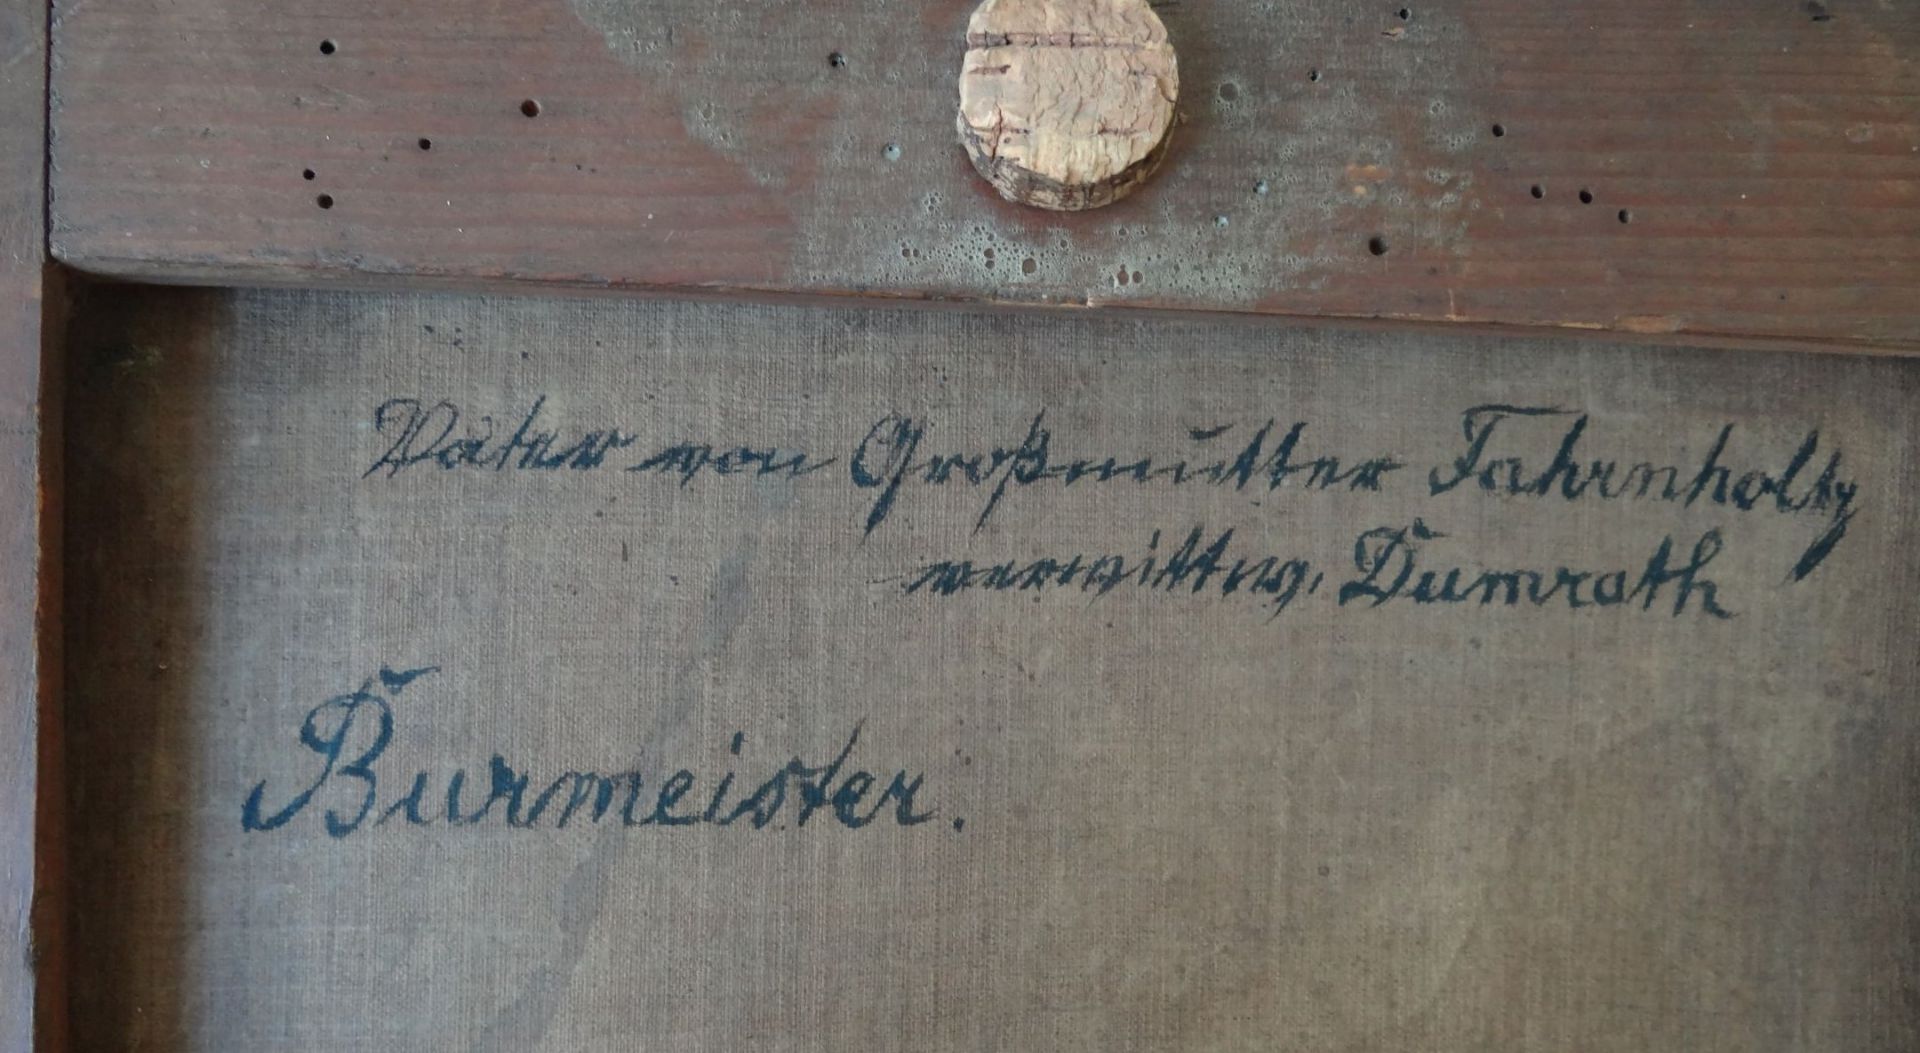 Vater von Großmutter Fahrnholtz
verwittw. Dumrath
Burmeister.